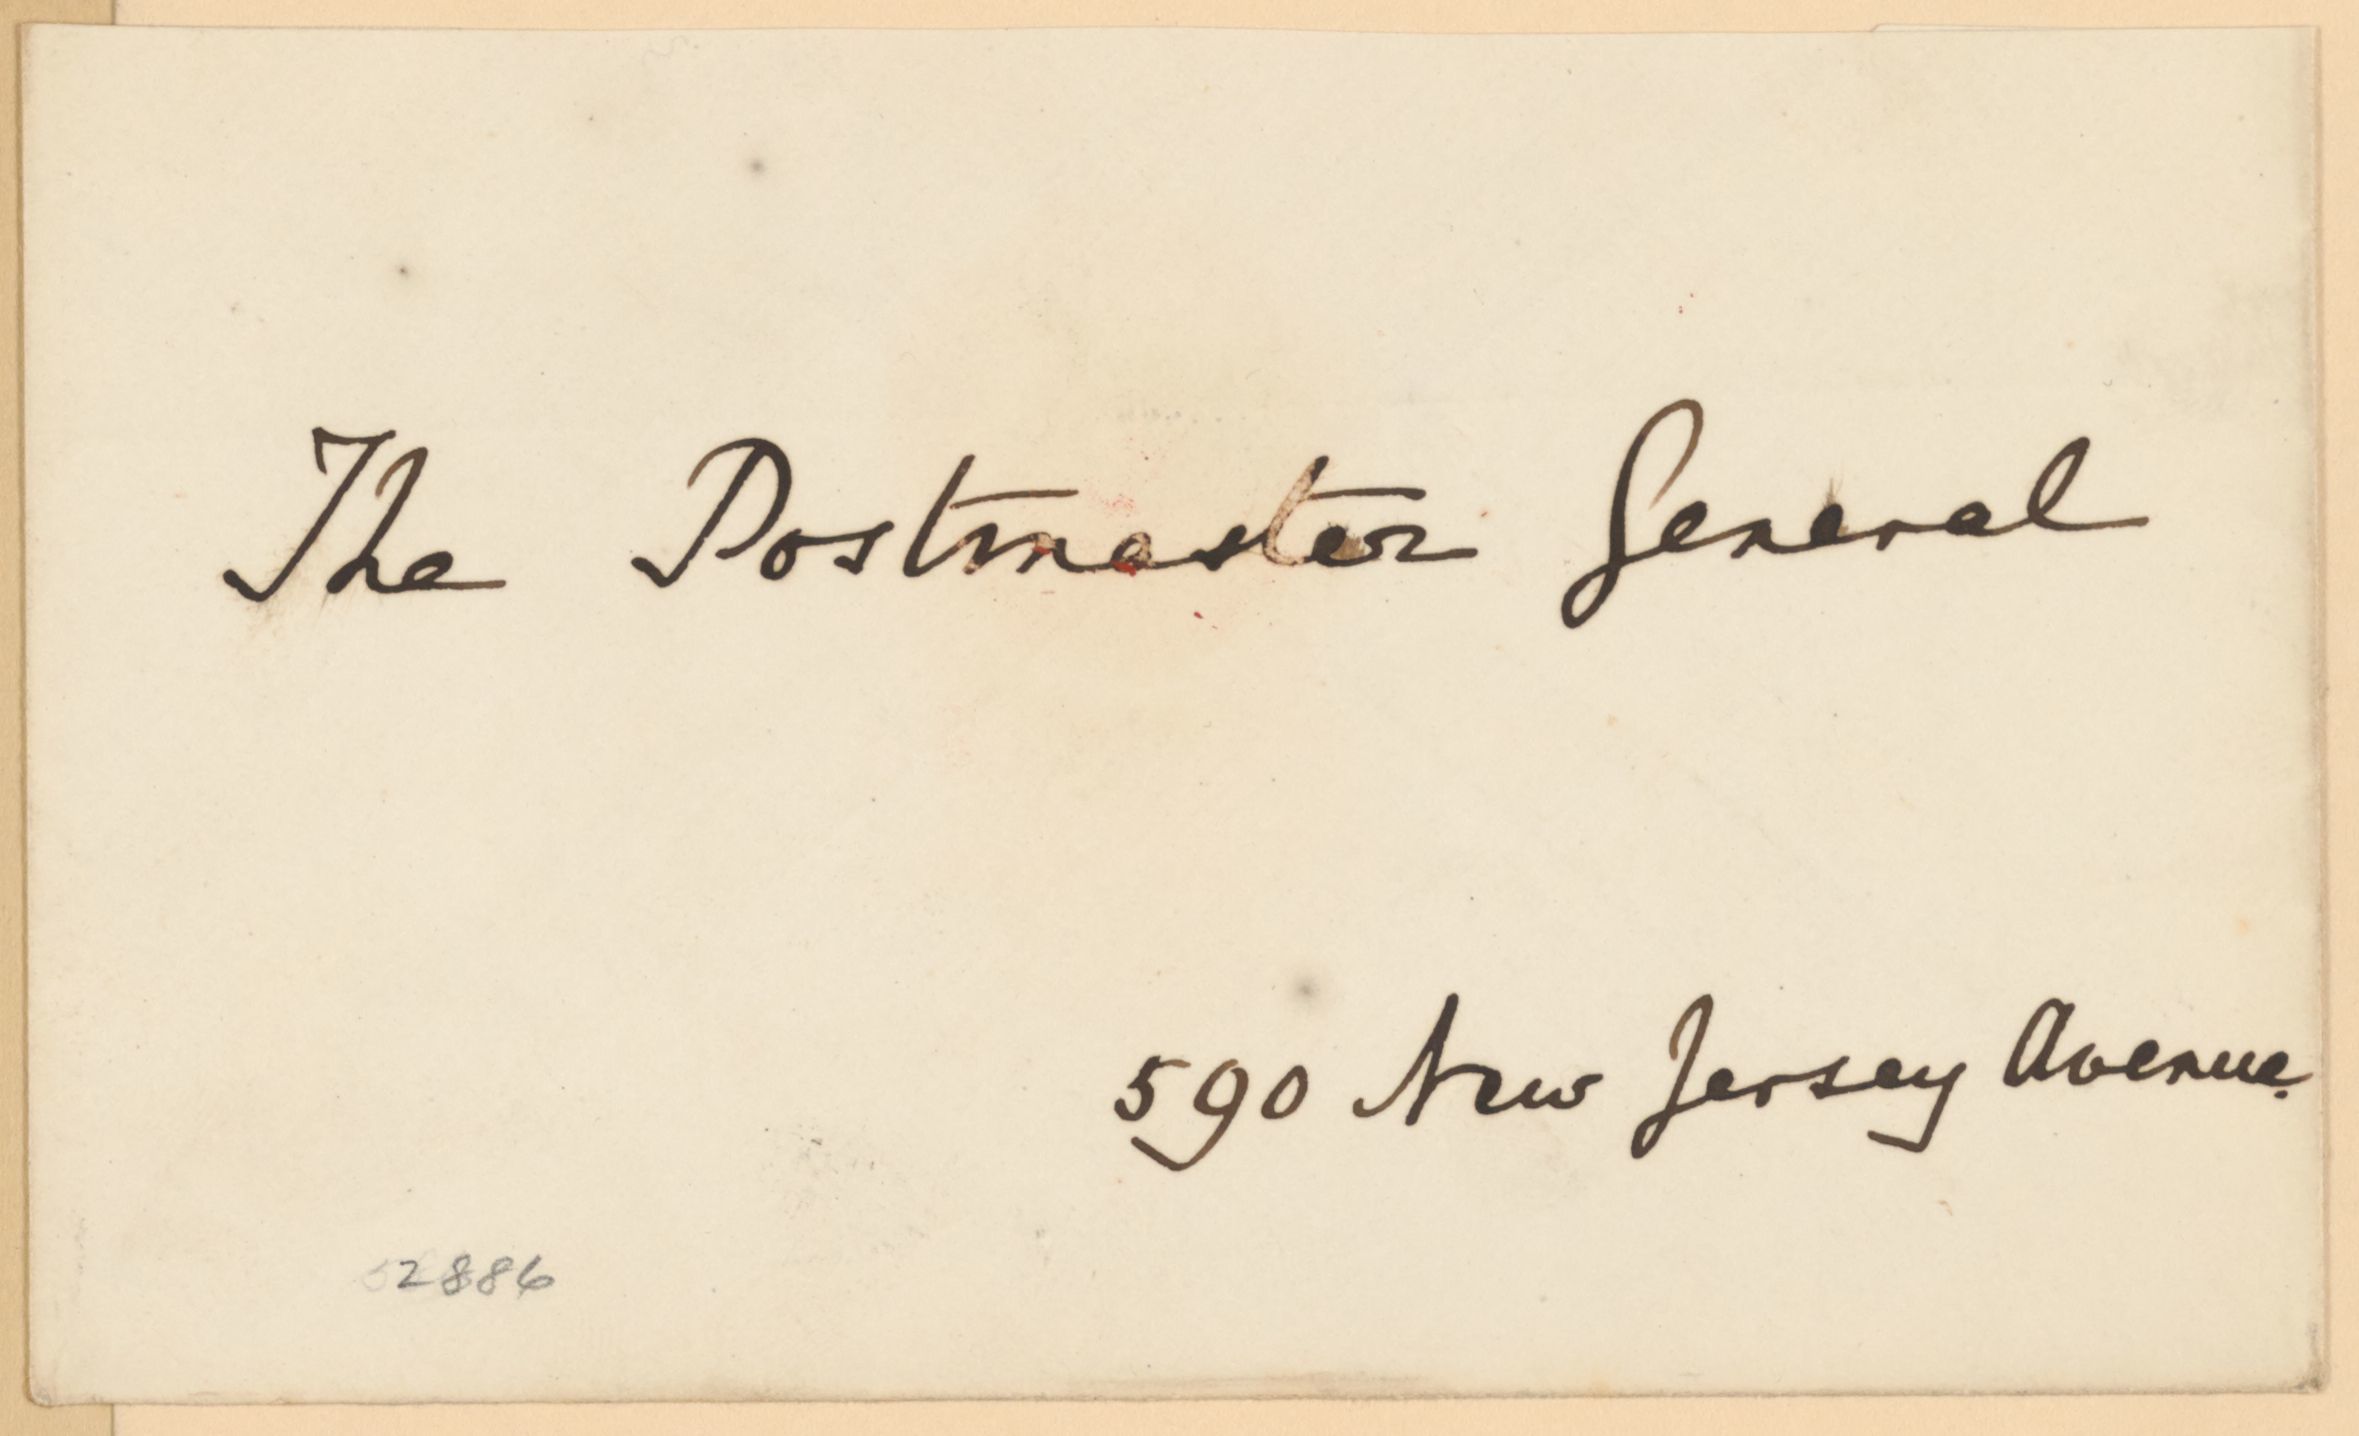 The Postmaster General
590 New Jersey Avenue.
2886